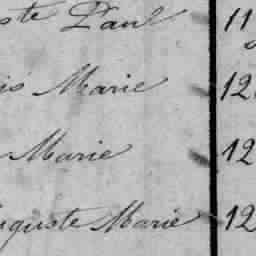 ste Paul 11
is Marie 12
Marie 12
uguste Marie 12